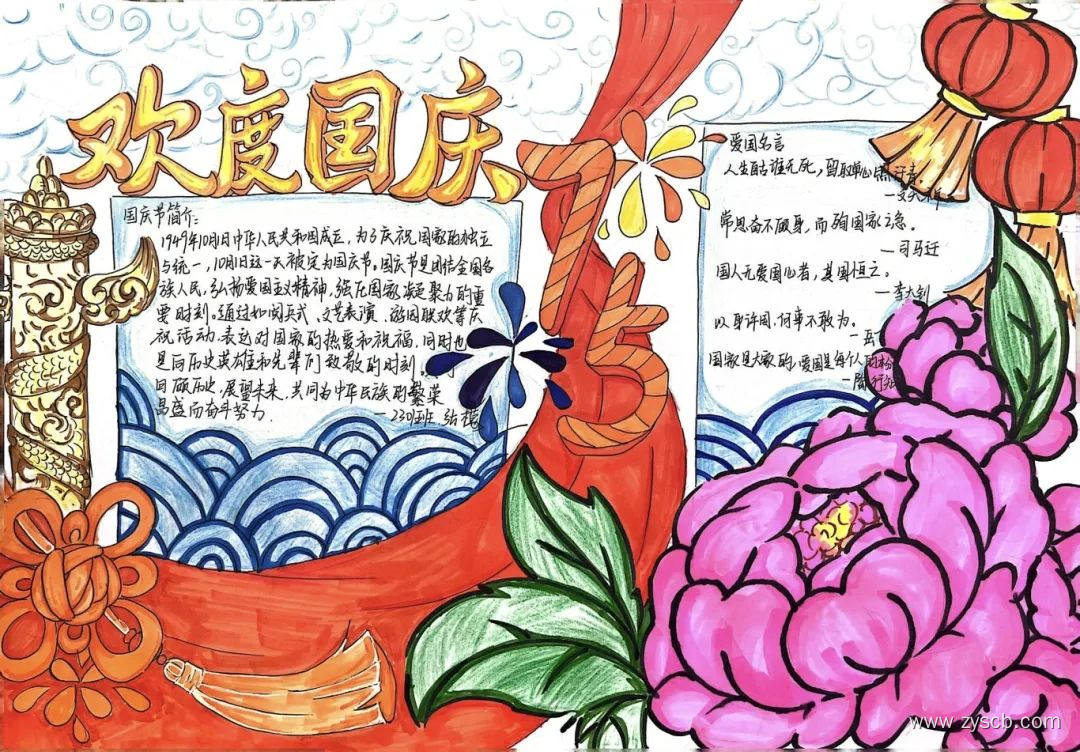 欢度国庆
75
国庆节简介:
1949年10月1日中华人民共和国成立,为了庆祝国家的独立
与统一,10月1日这一天被定为国庆节。国庆节是团结全国各
族人民,弘扬爱国主义精神,强化国家凝聚力的重
要时刻。通过如阅兵式、文艺表演、游园联欢等庆
祝活动,表达对国家的热爱和祝福,同时也
是向历史英雄和先辈们致敬的时刻。
回顾历史、展望未来,共同为中华民族的繁荣
昌盛而奋斗努力.
—230班 张
爱国名言
人生自古谁无死,留取丹心照汗青
—文天祥
常思奋不顾身,而殉国家之急。
—司马迁
国人无爱国心者,其国恒亡。
—李大钊
以身许国,何事不敢为。
—岳
国家是大家的,爱国是每个人的本分
—陶行知
www.zyscb.com